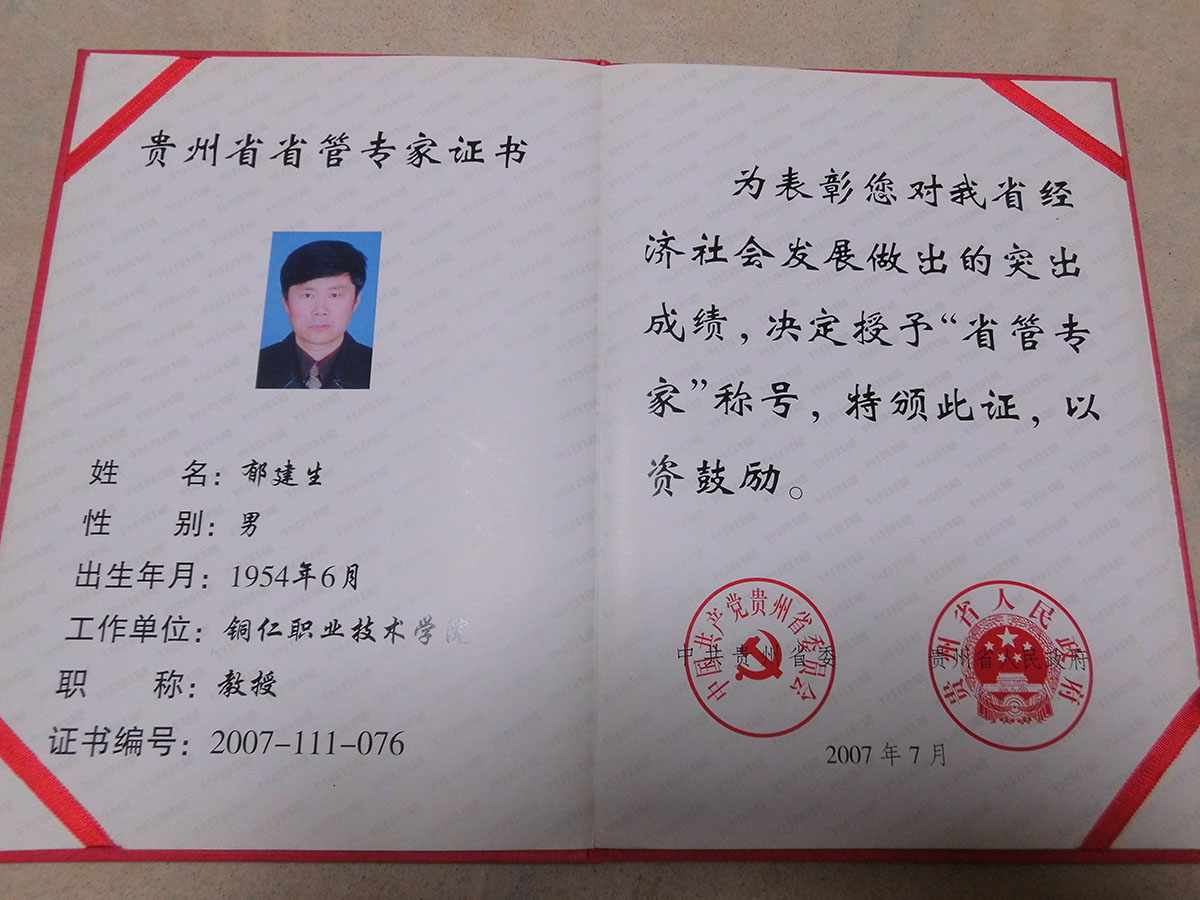 贵州省省管专家证书
姓 名：郁建生
性 别：男
出生年月：1954年6月
工作单位：铜仁职业技术学院
职 称：教授
证书编号：2007-111-076
为表彰您对我省经
济社会发展做出的突出
成绩，决定授予“省管专
家”称号，特颁此证，以
资鼓励。
中国共产党贵州省委员会
中共贵州省委
贵州省人民政府
贵州省人民政府
2007年7月